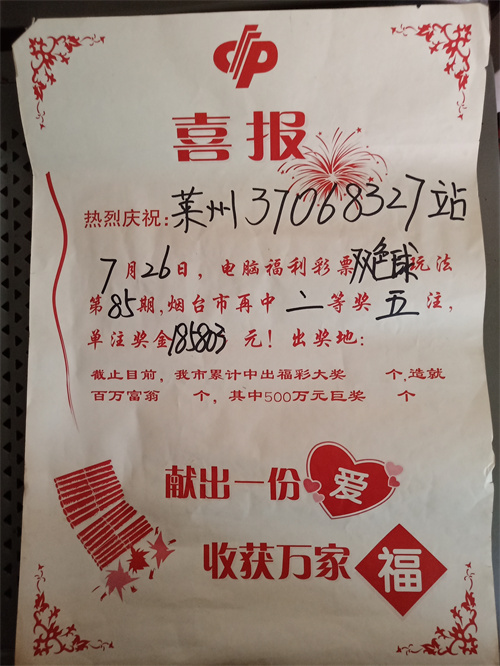 喜报
热烈庆祝:莱州37068327站
7月26日，电脑福利彩票双色球玩法
第85期,烟台市再中二等奖五注,
单注奖金185803元！出奖地:
截止目前，我市累计中出福彩大奖 个,造就
百万富翁 个，其中500万元巨奖 个
献出一份爱
收获万家福